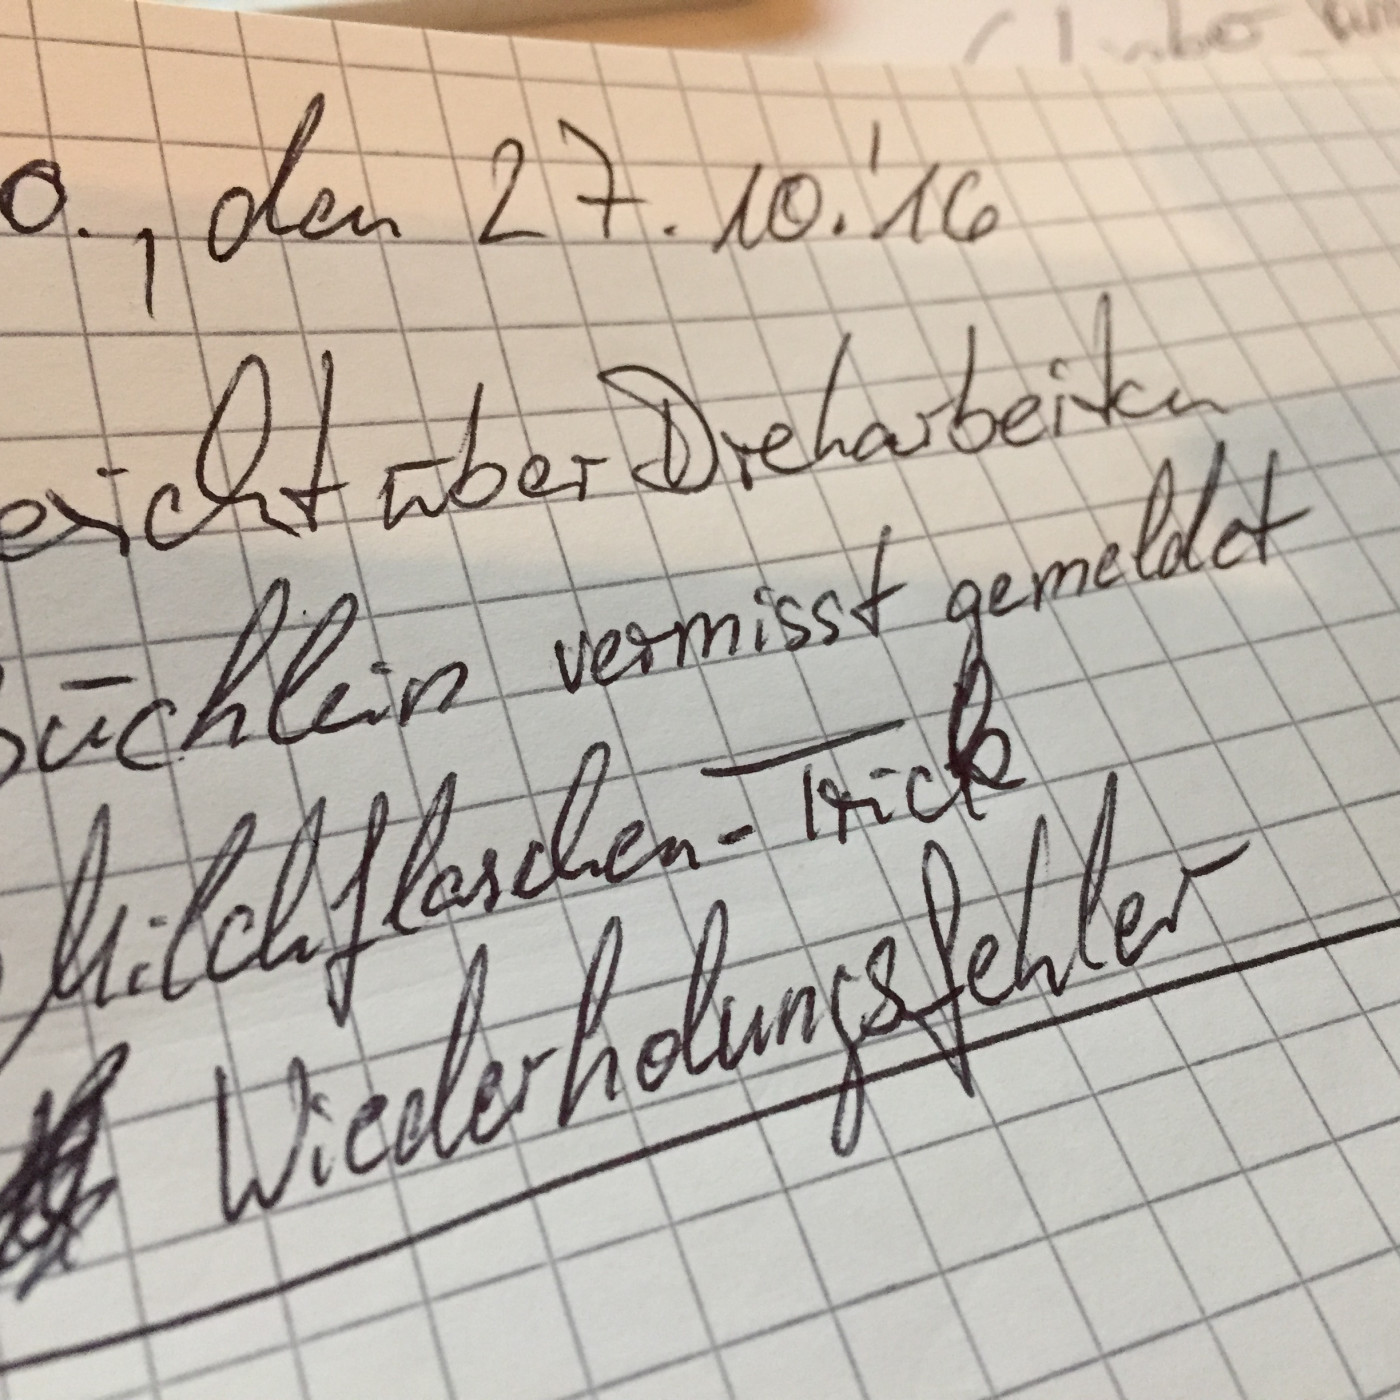 o., den 27.10.'16
ericht über Dreharbeiten
Büchlein vermisst gemeldet
Milchflaschen-Trick
Wiederholungsfehler